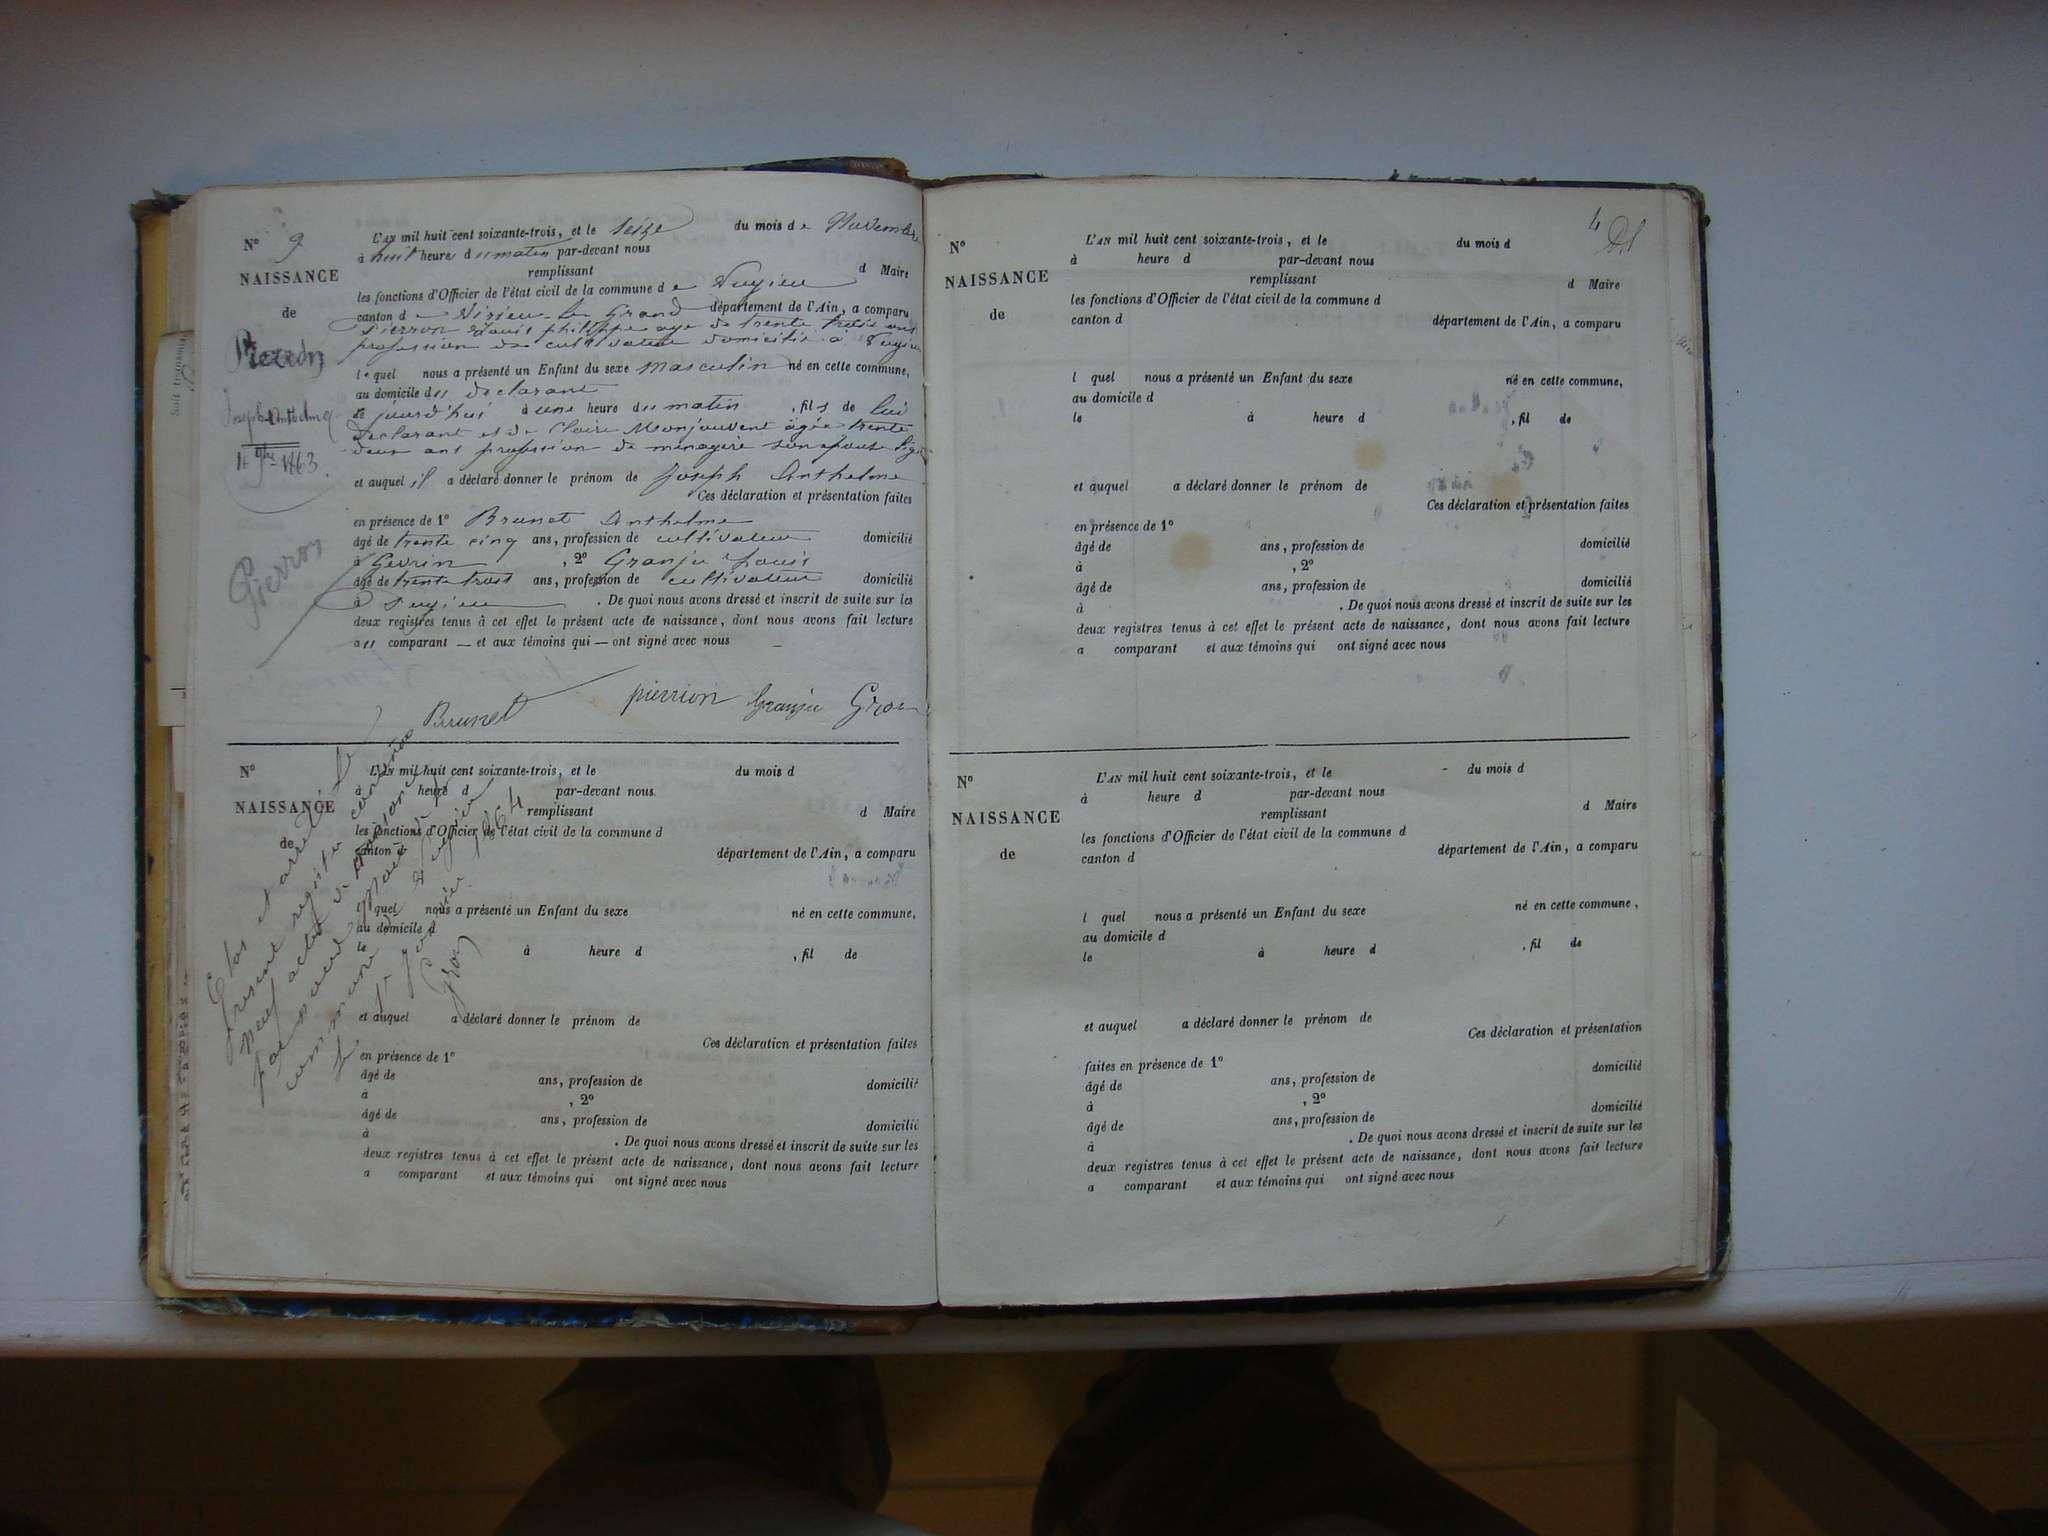 N° 9
NAISSANCE
de
Pierron
Joseph Anthelme
1863
Pierron
L'AN mil huit cent soixante-trois, et le seize du mois de Novembre
à huit heure du matin par-devant nous
remplissant d Maire
les fonctions d'Officier de l'état civil de la commune de Pugieu
canton de Virieu-le Grand département de l'Ain, a comparu
Pierron Louis philippe age de trente trois ans
profession de cultivateur domicilié à Pugieu
lequel nous a présenté un Enfant du sexe Masculin né en cette commune,
au domicile du declarant
le jourd'hui à une heure du matin , fils de lui
declarant et de Claire Monjouvent agée trente
deux ans profession de ménagère son épouse
et auquel il a déclaré donner le prénom de Joseph Anthelme
Ces déclaration et présentation faites
en présence de 1° Brunet Anthelme
âgé de trente cinq ans, profession de cultivateur domicilié
à Gevrin , 2° Granju Louis
âgé de trente trois ans, profession de cultivateur domicilié
à Pugieu . De quoi nous avons dressé et inscrit de suite sur les
deux registres tenus à cet effet le présent acte de naissance, dont nous avons fait lecture
au comparant — et aux témoins qui — ont signé avec nous
Brunet pierrion Granju Gros
N°
NAISSANCE
de
L'AN mil huit cent soixante-trois, et le du mois d
à heure d par-devant nous
remplissant d Maire
les fonctions d'Officier de l'état civil de la commune d
canton d
département de l'Ain, a comparu
l quel nous a présenté un Enfant du sexe né en cette commune,
au domicile d
le à heure d , fil de
et auquel a déclaré donner le prénom de
Ces déclaration et présentation faites
en présence de 1°
âgé de ans, profession de domicilié
à , 2°
âgé de ans, profession de domicilié
à . De quoi nous avons dressé et inscrit de suite sur les
deux registres tenus à cet effet le présent acte de naissance, dont nous avons fait lecture
a comparant et aux témoins qui ont signé avec nous
Clos et arrêté le
présent registre contenant
neuf actes de naissance
par nous Maire de la
commune de Pugieu
le 1er janvier 1864
Gros
4
N°
NAISSANCE
de
L'AN mil huit cent soixante-trois, et le du mois d
à heure d par-devant nous
remplissant d Maire
les fonctions d'Officier de l'état civil de la commune d
canton d département de l'Ain, a comparu
l quel nous a présenté un Enfant du sexe né en cette commune,
au domicile d
le à heure d , fil de
et auquel a déclaré donner le prénom de
Ces déclaration et présentation faites
en présence de 1°
âgé de ans, profession de domicilié
à , 2°
âgé de ans, profession de domicilié
à . De quoi nous avons dressé et inscrit de suite sur les
deux registres tenus à cet effet le présent acte de naissance, dont nous avons fait lecture
a comparant et aux témoins qui ont signé avec nous
N°
NAISSANCE
de
L'AN mil huit cent soixante-trois, et le du mois d
à heure d par-devant nous
remplissant d Maire
les fonctions d'Officier de l'état civil de la commune d
canton d département de l'Ain, a comparu
l quel nous a présenté un Enfant du sexe né en cette commune,
au domicile d
le à heure d , fil de
et auquel a déclaré donner le prénom de
Ces déclaration et présentation
faites en présence de 1° domicilié
âgé de ans, profession de
à , 2°
âgé de ans, profession de domicilié
à . De quoi nous avons dressé et inscrit de suite sur les
deux registres tenus à cet effet le présent acte de naissance, dont nous avons fait lecture
a comparant et aux témoins qui ont signé avec nous